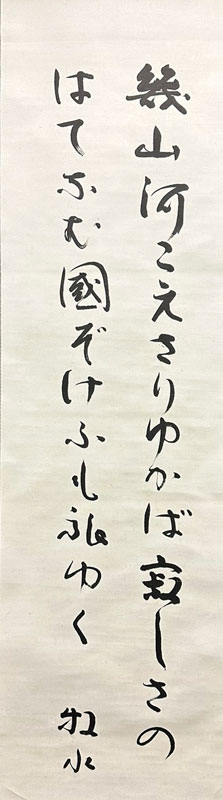 幾山河こえさりゆかば寂しさの
はてなむ國ぞけふも旅ゆく
牧水